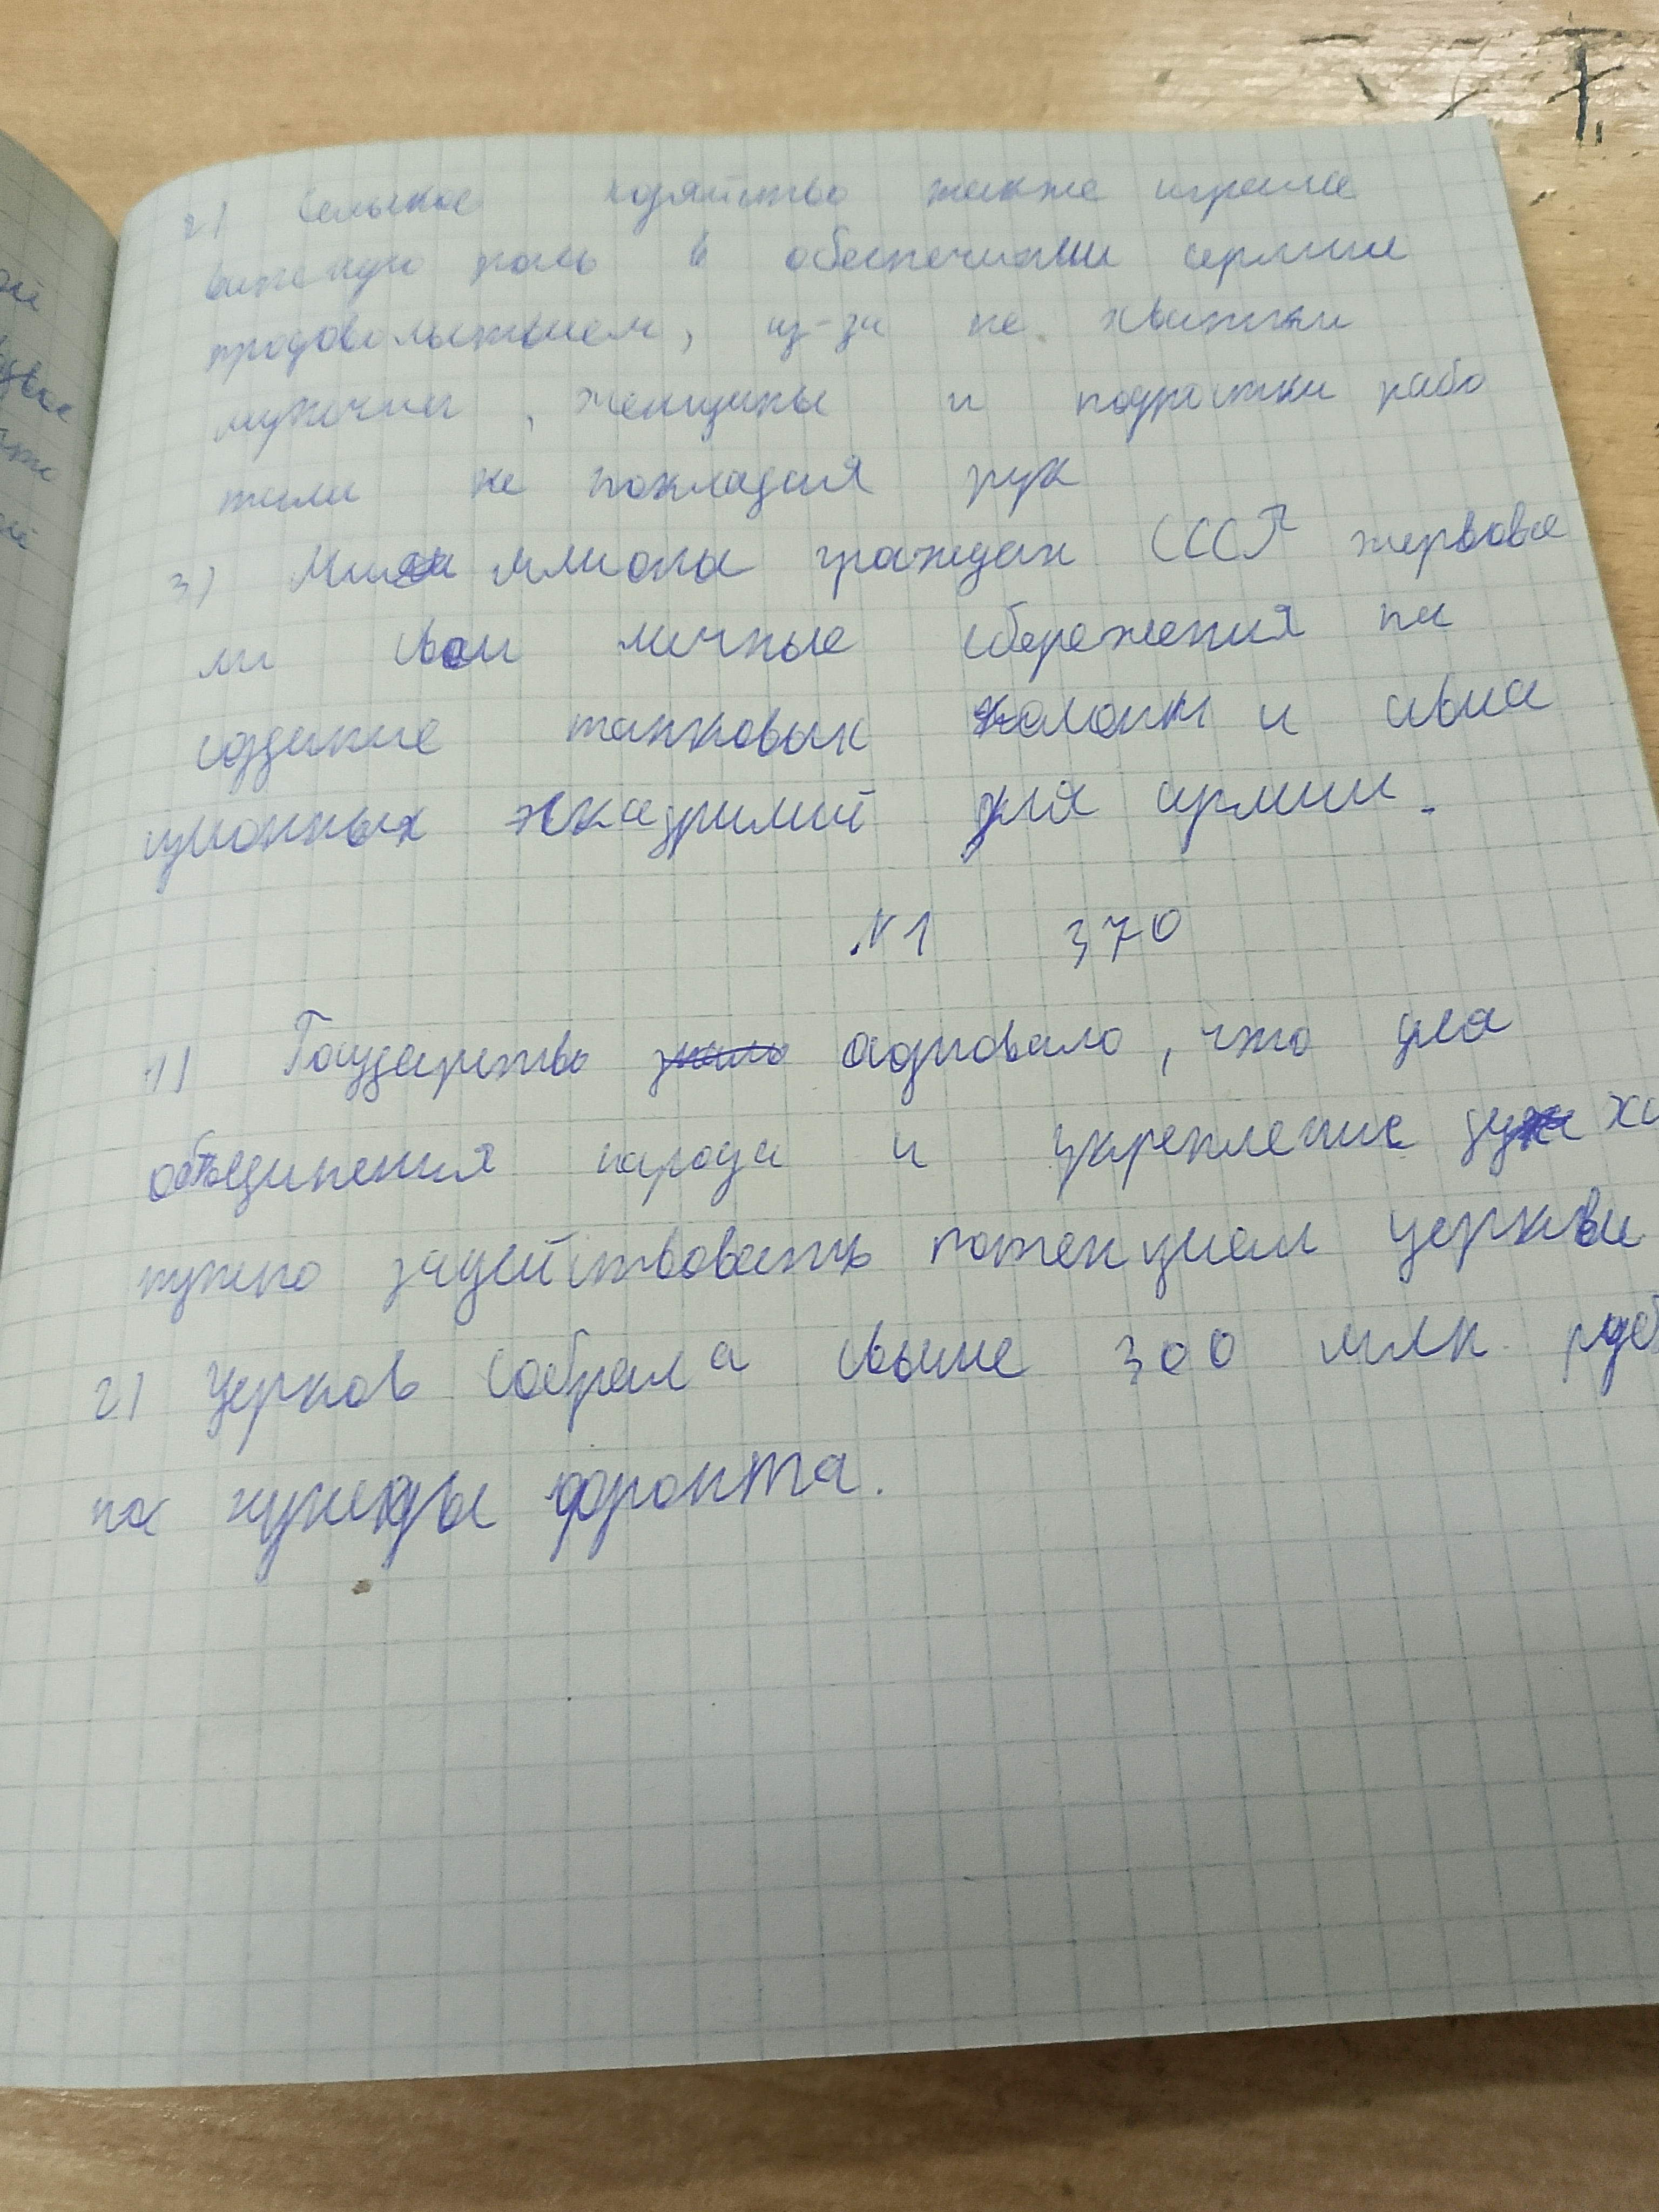 2) Сельское хозяйство также играла
важную роль в обеспечинии армии
продовольствием, из-за не хватки
мужчин, женщины и подростки рабо
тали не покладая рук
3) миллиона граждан СССР жертвова
ли свои личные сбережения на
создание танковых колонн и авиа
ционных эскадрилий для армии.
№1 370
1) Государство осозновало, что для
объединения народа и укрепление духа
нужно задействовать потенциал церкви
2) Церковь собрала свыше 300 млн. руб
на нужды фронта.